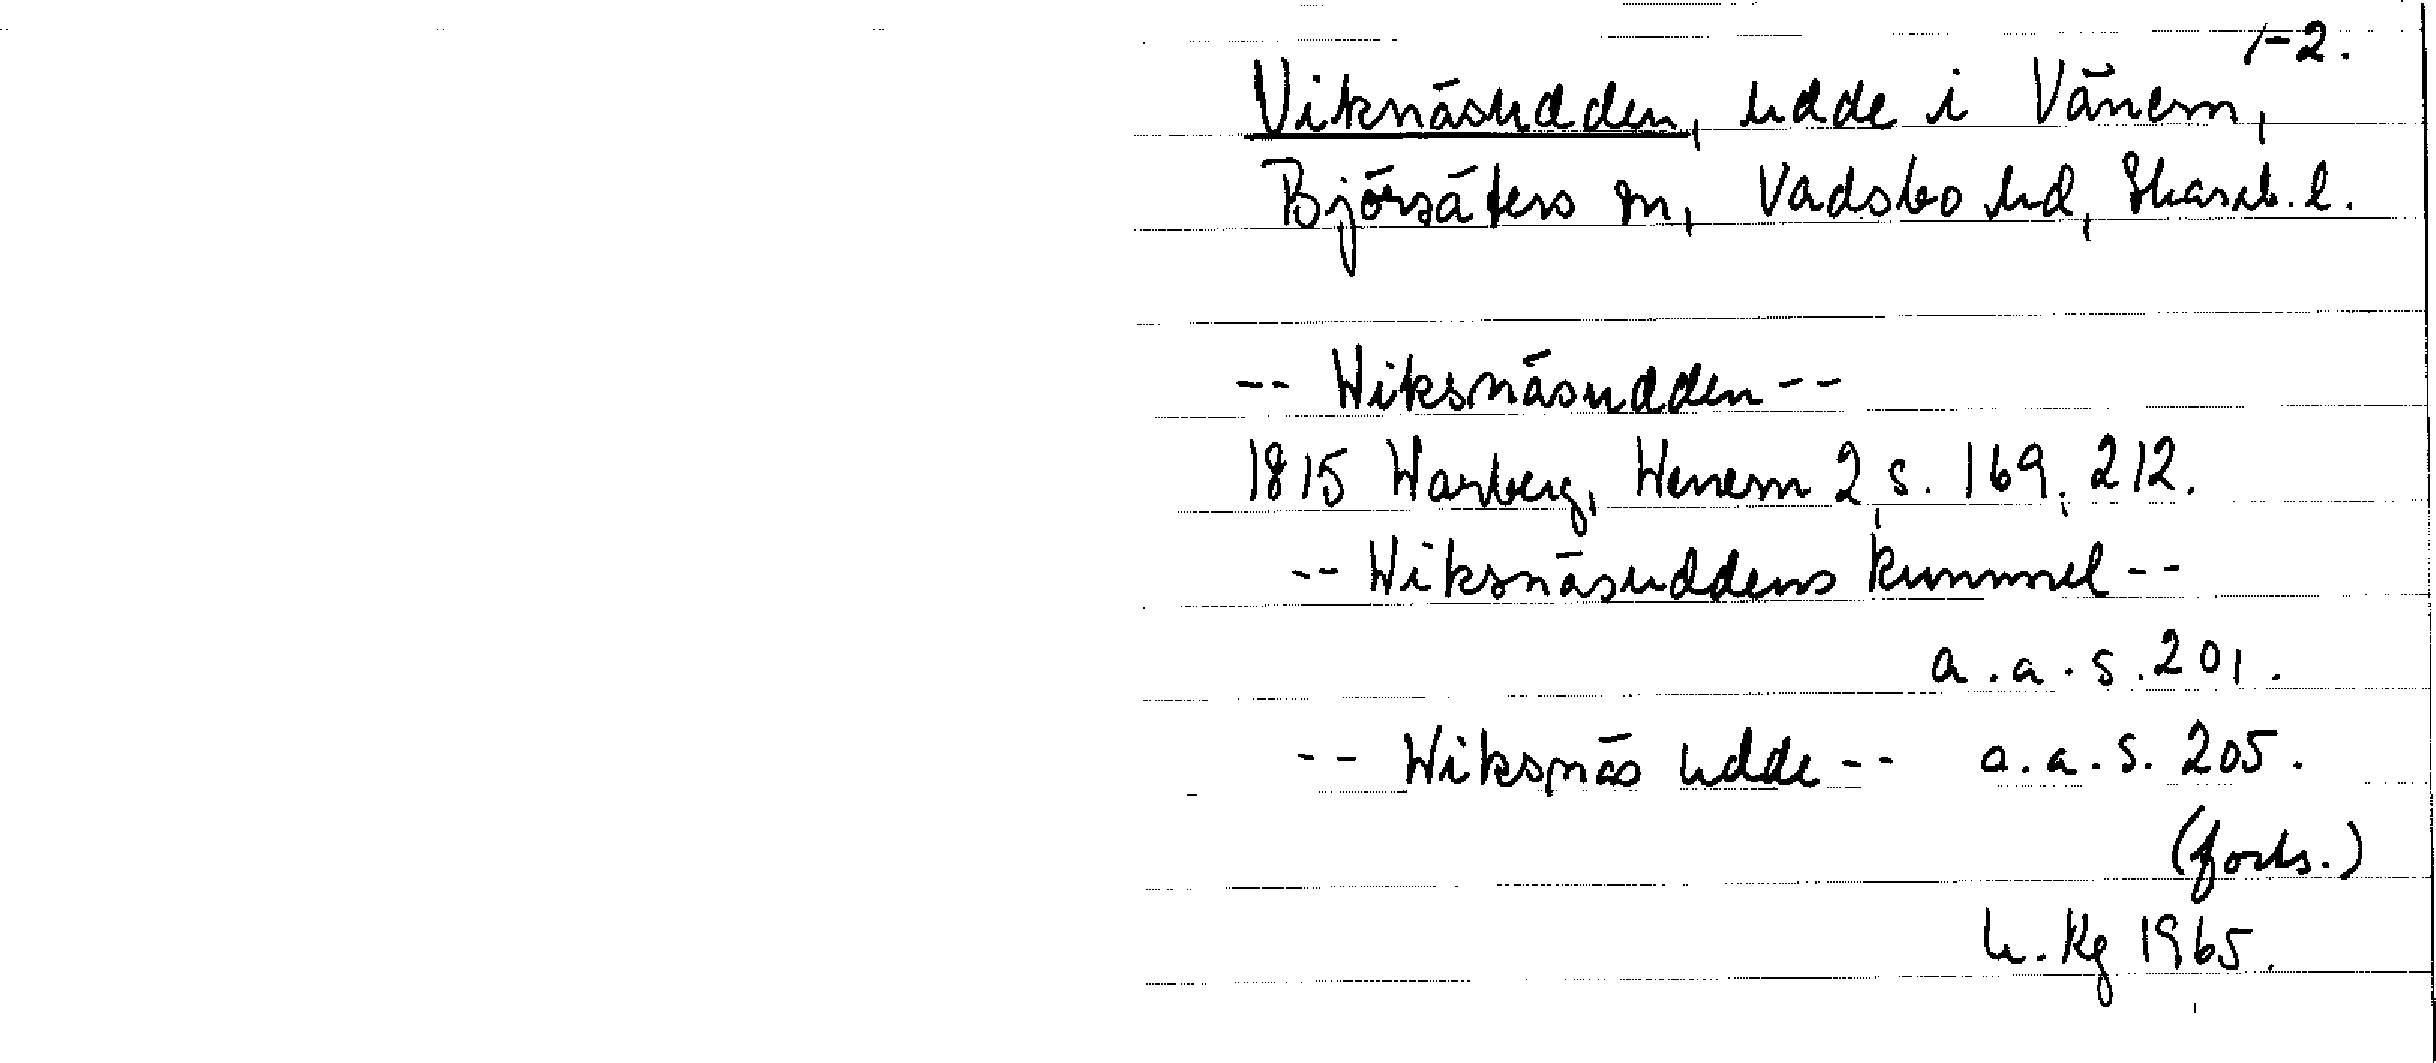 1-2.
Viknäsudden, udde i Vänern,
Björsäters sn, Vadsbo hd, Skarab. l.
-- Wiksnäsudden --
1815 Warberg, Wenern 2, s. 169, 212.
-- Wiksnäsuddens kummel --
a.a. s. 201.
-- Wiksnäs udde -- a.a. s. 205.
(forts.)
U. Kg 1965.